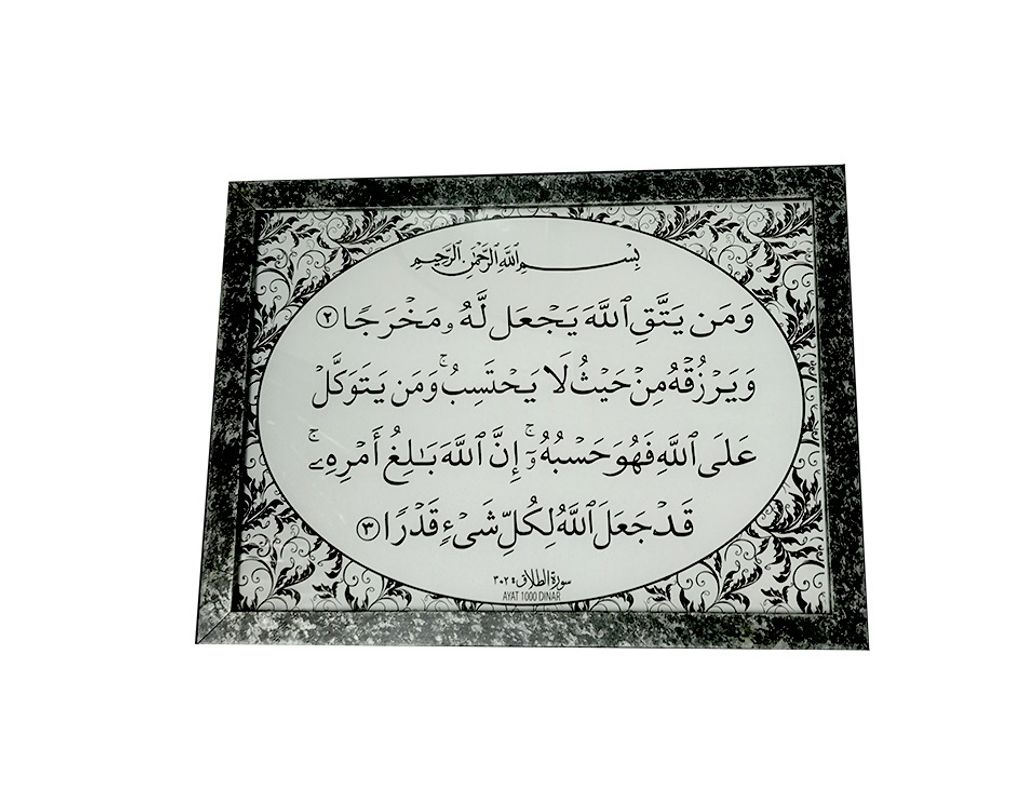 بِسْمِ اللَّهِ الرَّحْمَٰنِ الرَّحِيمِ
وَمَن يَتَّقِ ٱللَّهَ يَجْعَل لَّهُۥ مَخْرَجًا ٢
وَيَرْزُقْهُ مِنْ حَيْثُ لَا يَحْتَسِبُ ۚ وَمَن يَتَوَكَّلْ
عَلَى ٱللَّهِ فَهُوَ حَسْبُهُۥٓ ۚ إِنَّ ٱللَّهَ بَٰلِغُ أَمْرِهِۦ ۚ
قَدْ جَعَلَ ٱللَّهُ لِكُلِّ شَىْءٍ قَدْرًا ٣
سورة الطلاق: ٢،٣
AYAT 1000 DINAR